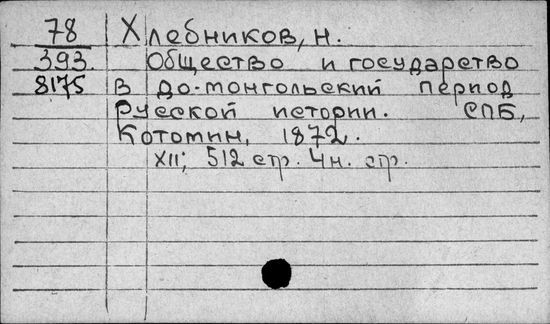 78 Хлебников, н.
393. Общество и государство
8175 в до-монгольский период
русской истории. СПБ,
Котомин, 1872.
XII; 512 стр. 4н. стр.